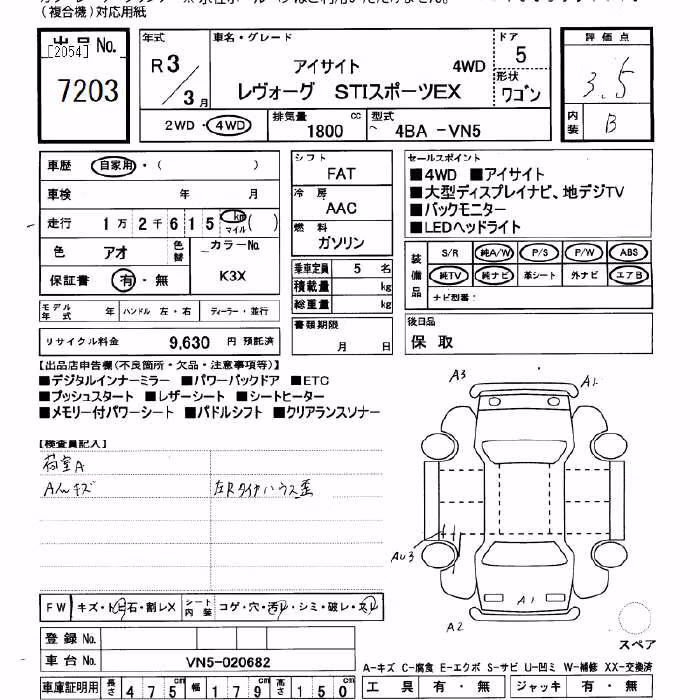 (複合機)対応用紙
出品 No.
[2054]
7203
年式
R3/3月
車名・グレード
アイサイト 4WD
レヴォーグ STIスポーツEX
ドア
5
形状
ワゴン
評価点
3.5
内装
B
2WD・4WD
排気量
1800 cc
型式
4BA -VN5
車歴 自家用・( )
車検 年 月
走行 1万2千615 km マイル ( )
色 アオ 色替
カラーNo.
K3X
保証書 有・無
モデル年式 年 ハンドル 左・右 ディーラー・並行
リサイクル料金 9,630 円 預託済
シフト
FAT
冷房
AAC
燃料
ガソリン
乗車定員 5 名
積載量 kg
総重量 kg
書類期限
月 日
セールスポイント
■4WD ■アイサイト
■大型ディスプレイナビ、地デジTV
■バックモニター
■LEDヘッドライト
装備品
S/R 純A/W P/S P/W ABS
純TV 純ナビ 革シート 外ナビ エアB
ナビ型番:
後日品
保 取
【出品店申告欄(不良箇所・欠品・注意事項等)】
■デジタルインナーミラー ■パワーバックドア ■ETC
■プッシュスタート ■レザーシート ■シートヒーター
■メモリー付パワーシート ■パドルシフト ■クリアランスソナー
【検査員記入】
荷室A
Aんキズ 左Rタイヤハウス歪
A3
A1
AU3
A1
A2
スペア
FW キズ・ト石・割レX
シート内装 コゲ・穴・汚レ・シミ・破レ・スレ
登録 No.
車台 No. VN5-020682
車庫証明用 長さ 475 cm 幅 179 cm 高さ 150 cm
A-キズ C-腐食 E-エクボ S-サビ U-凹ミ W-補修 XX-交換済
工具 有・無 ジャッキ 有・無